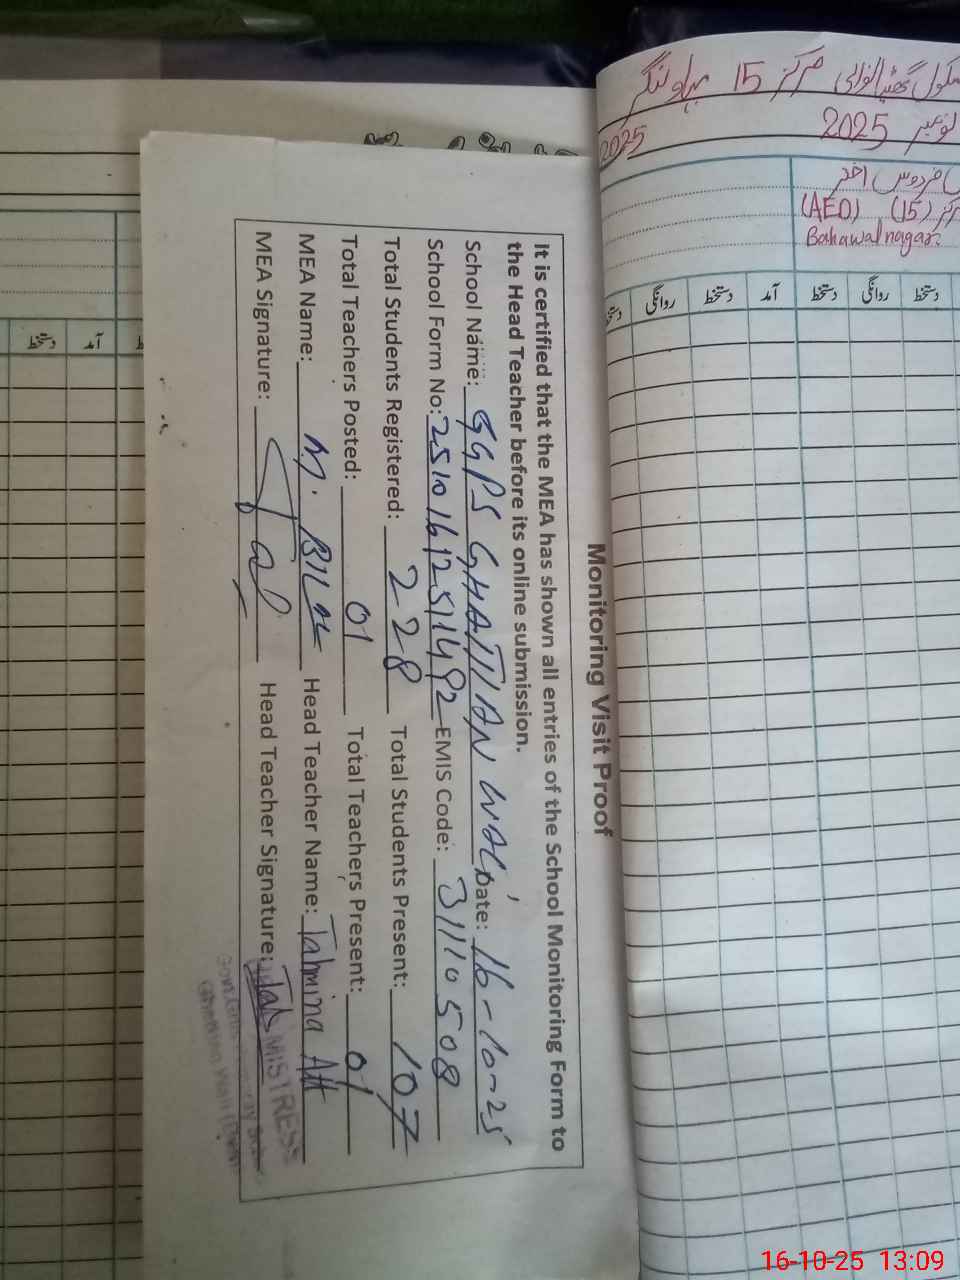 سکول گھٹیانوالی مرکز 15 بہاولنگر
نومبر 2025
2025
فردوس اختر
(AEO) مرکز (15)
Bahawalnagar
دستخط روانگی دستخط آمد دستخط روانگی
آمد دستخط
Monitoring Visit Proof
It is certified that the MEA has shown all entries of the School Monitoring Form to
the Head Teacher before its online submission.
School Name: GGPS GHATIAN WALI Date: 16-10-25
School Form No: 2510161251492 EMIS Code: 31110508
Total Students Registered: 228 Total Students Present: 107
Total Teachers Posted: 01 Total Teachers Present: 01
MEA Name: M. BILAL Head Teacher Name: Tahmina Akh
MEA Signature: Head Teacher Signature:
MISTRESS
16-10-25 13:09